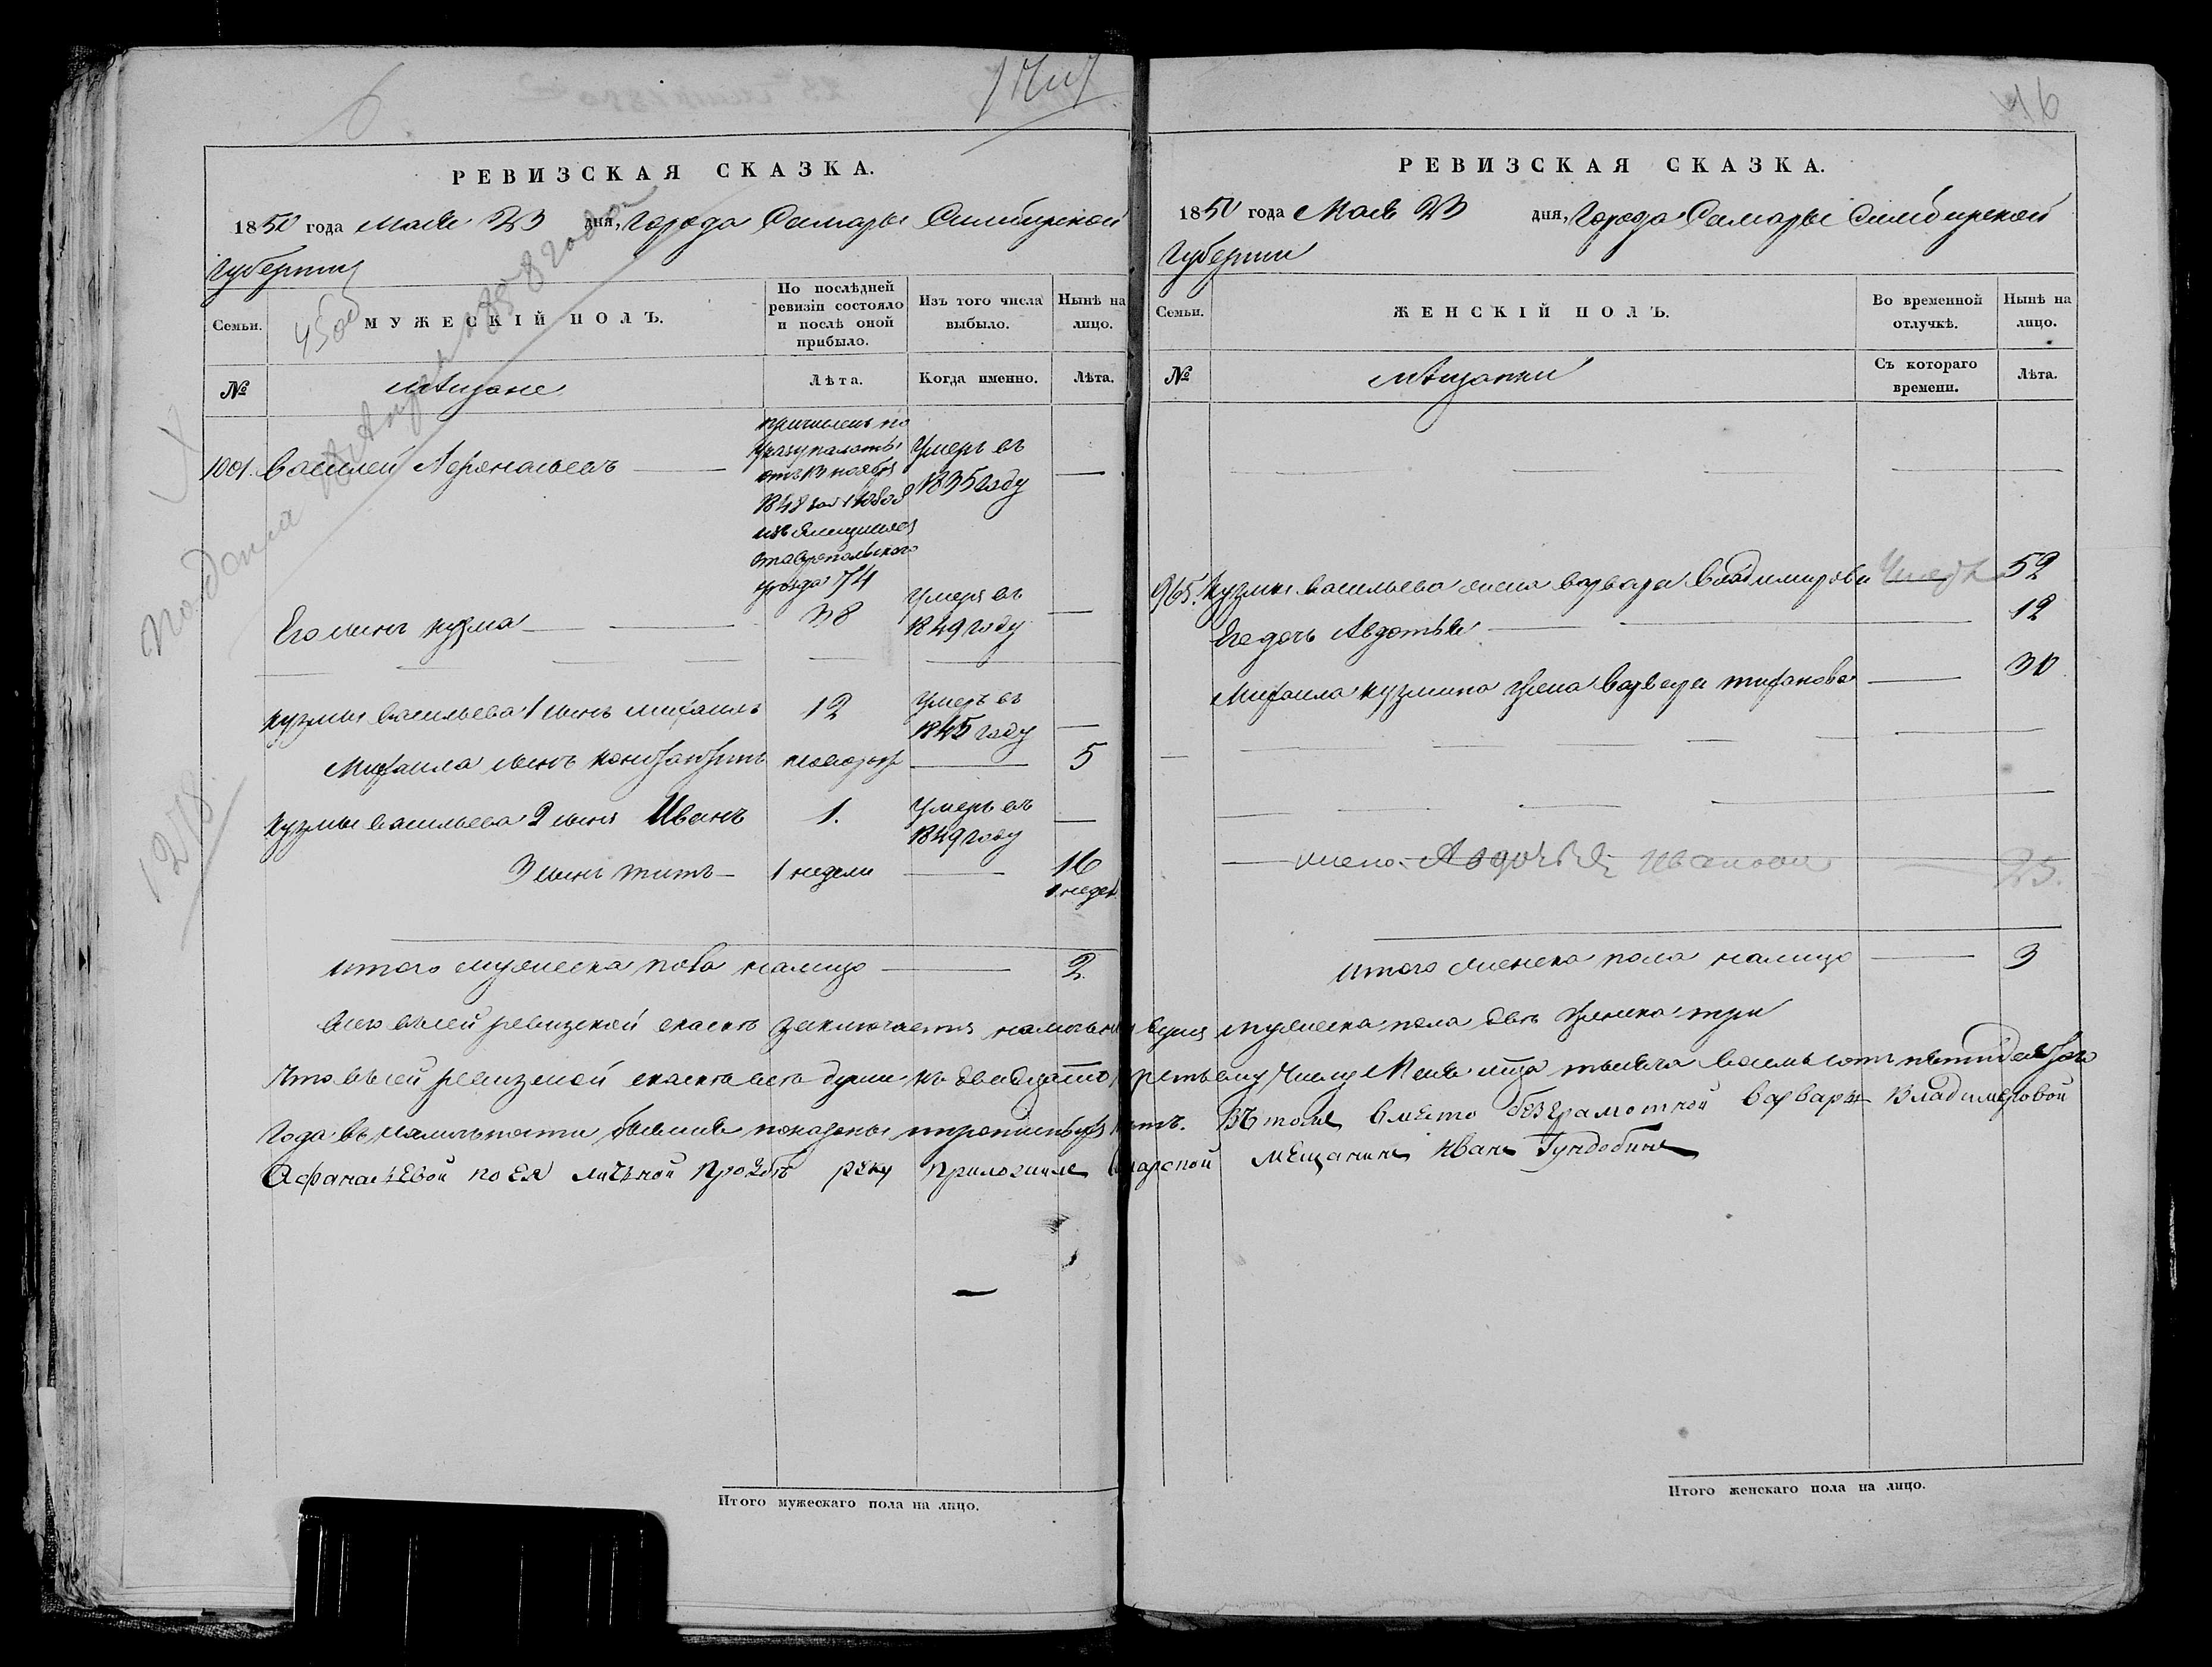 46
РЕВИЗСКАЯ СКАЗКА.
1850 года Мая 23 дня, Города Самары Симбирской
Губернии
Семьи.
МУЖЕСКІЙ ПОЛЪ.
По послѣдней ревизіи состояло и послѣ оной прибыло.
Изъ того числа выбыло.
Нынѣ на лицо.
№
мѣщане
Лѣта.
Когда именно.
Лѣта.
причисленъ по
указу палаты
отъ 13 ноября
1848
Ставропольскаго
уѣзда 74
1001. Василей Афонасьевъ
Умеръ въ
1835 году
Его сынъ Кузма 38
Умеръ въ
1849 году
Кузмы Васильева 1 сынъ Михаилъ 12
Умеръ въ
1845 году
Михаила сынъ Констянтинъ 5
Кузмы Васильева 2 сынъ Иванъ 1.
Умеръ въ
1849 году
3 сынъ Титъ 1 недели 16
1 недел
итого мужеска пола налицо 2
Итого мужескаго пола на лицо.
1278
4500
РЕВИЗСКАЯ СКАЗКА.
1850 года Мая 23 дня, Города Самары Симбирской
Губернии
Семьи.
ЖЕНСКІЙ ПОЛЪ.
Во временной отлучкѣ.
Нынѣ на лицо.
№
мѣщанки
Съ котораго времени.
Лѣта.
965. Кузмы Васильева жена Варвара Владимирова 52
Ее дочь Авдотья 12
Михаила Кузмина жена Варвара 30
жена Авдотья Иванова 23.
итого женска пола налицо 3
Всего въ сей ревизской сказкѣ заключается наличныхъ душъ мужеска пола двѣ женска три
Что въ сей ревизской сказкѣ всѣ души къ двадцать третьему числу Мая м͠ца тысяча восемь сотъ пятидесятаго
года въ наличности бывшия показаны и прописныхъ нѣтъ. Въ томъ вместо безграмотной Варвары Владимеровой
Афанасьевой по ея личной прозбѣ руку приложилъ Самарской мещанинъ Иванъ Гундобинъ
Итого женскаго пола на лицо.